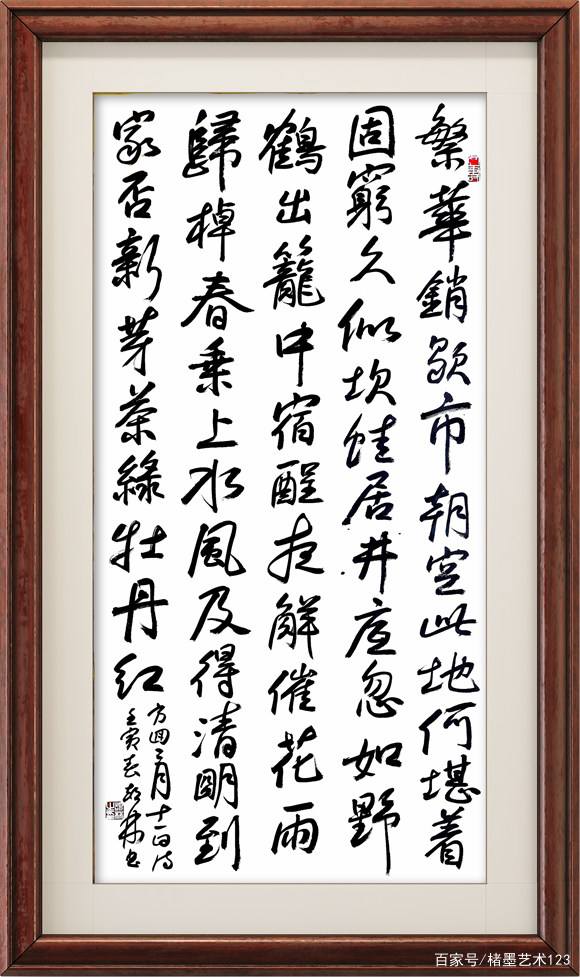 繁華銷歇市朝空此地何堪着
固窮久似坎蛙居井底忽如野
鶴出籠中宿酲夜解催花雨
歸棹春乗上水風及得清明到
家否新芽茶綠牡丹紅
方回三月十一日詩
壬寅春
書
百家号/楮墨艺术123